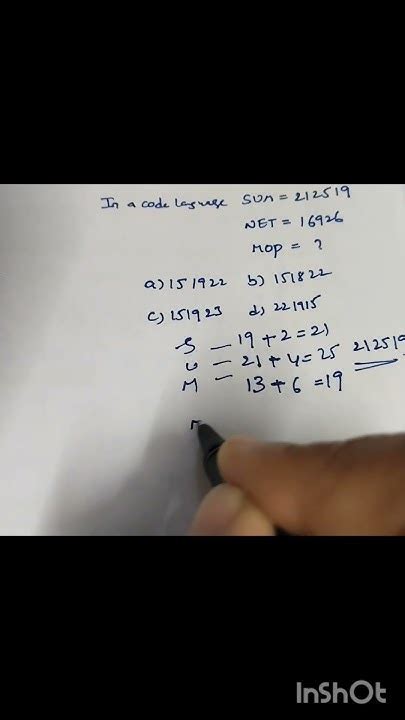 In a code lagrage SUM = 212519
NET = 16926
MOP = ?
a) 151922 b) 151822
c) 151923 d) 221915
S — 19 + 2 = 21
U — 21 + 4 = 25 212519
M — 13 + 6 = 19
InShOt